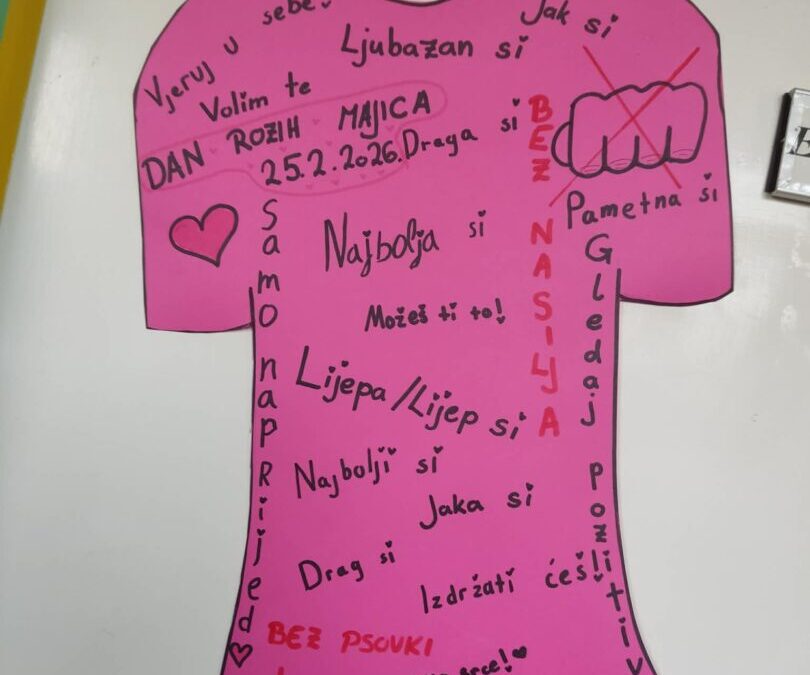 sebe!
Jak si
Vjeruj u
Ljubazan si
Volim te
DAN ROZIH MAJICA
25.2.2026.
Draga si
BEZ NASILJA
Pametna si
Samo naprijed
Najbolja si
Gledaj pozitiv
Možeš ti to!
Lijepa/Lijep si
Najbolji si
Jaka si
Drag si
Izdržati ćeš!
BEZ PSOVKI
srce!